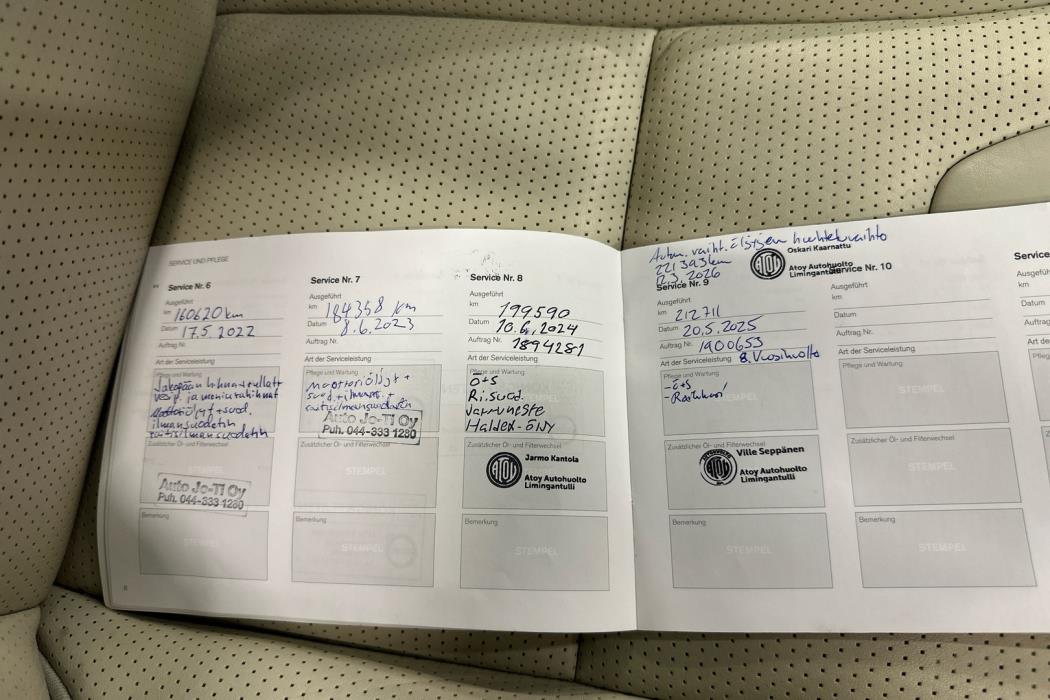 SERVICE UND PFLEGE
Service Nr. 6
Ausgeführt
km 160620 km
Datum 17.5.2022
Auftrag Nr.
Art der Serviceleistung
Pflege und Wartung
Jakopään hihna+rullat+
vesip. ja moniurahihnat
+ suod.
ilmansuodatin
raitisilmansuodatin
Zusätzlicher Öl- und Filterwechsel
STEMPEL
Auto Jo-Ti Oy
Puh. 044-333 1280
Bemerkung
STEMPEL
6
Service Nr. 7
Ausgeführt
km 184358 km
Datum 8.6.2023
Auftrag Nr.
Art der Serviceleistung
Pflege und Wartung
Moottoriöljyt +
suod. + ilmans. +
raitisilmansuodatin
Auto Jo-Ti Oy
Puh. 044-333 1280
Zusätzlicher Öl- und Filterwechsel
STEMPEL
Bemerkung
STEMPEL
Service Nr. 8
Ausgeführt
km 199590
Datum 10.6.2024
Auftrag Nr. 1894281
Art der Serviceleistung
Pflege und Wartung
Ö+S
Ri.suod.
Jarruneste
Haldex-öljy
Zusätzlicher Öl- und Filterwechsel
ATOY
Jarmo Kantola
Atoy Autohuolto
Limingantulli
Bemerkung
STEMPEL
Autom. vaiht. öljyjen huuhteluvaihto
221393km
12.3.2026
Oskari Kaarnattu
ATOY
Atoy Autohuolto
Limingantulli
Service Nr. 9
Ausgeführt
km 212711
Datum 20.5.2025
Auftrag Nr. 1900653
Art der Serviceleistung 8. Vuosihuolto
Pflege und Wartung
-ö+s
Zusätzlicher Öl- und Filterwechsel
ATOY
Ville Seppänen
Atoy Autohuolto
Limingantulli
Bemerkung
STEMPEL
Service Nr. 10
Ausgeführt
km
Datum
Auftrag Nr.
Art der Serviceleistung
Pflege und Wartung
STEMPEL
Zusätzlicher Öl- und Filterwechsel
STEMPEL
Bemerkung
STEMPEL
Service
Ausgeführt
km
Datum
Auftrag
Art der
Pflege
Zusätzl
Beme